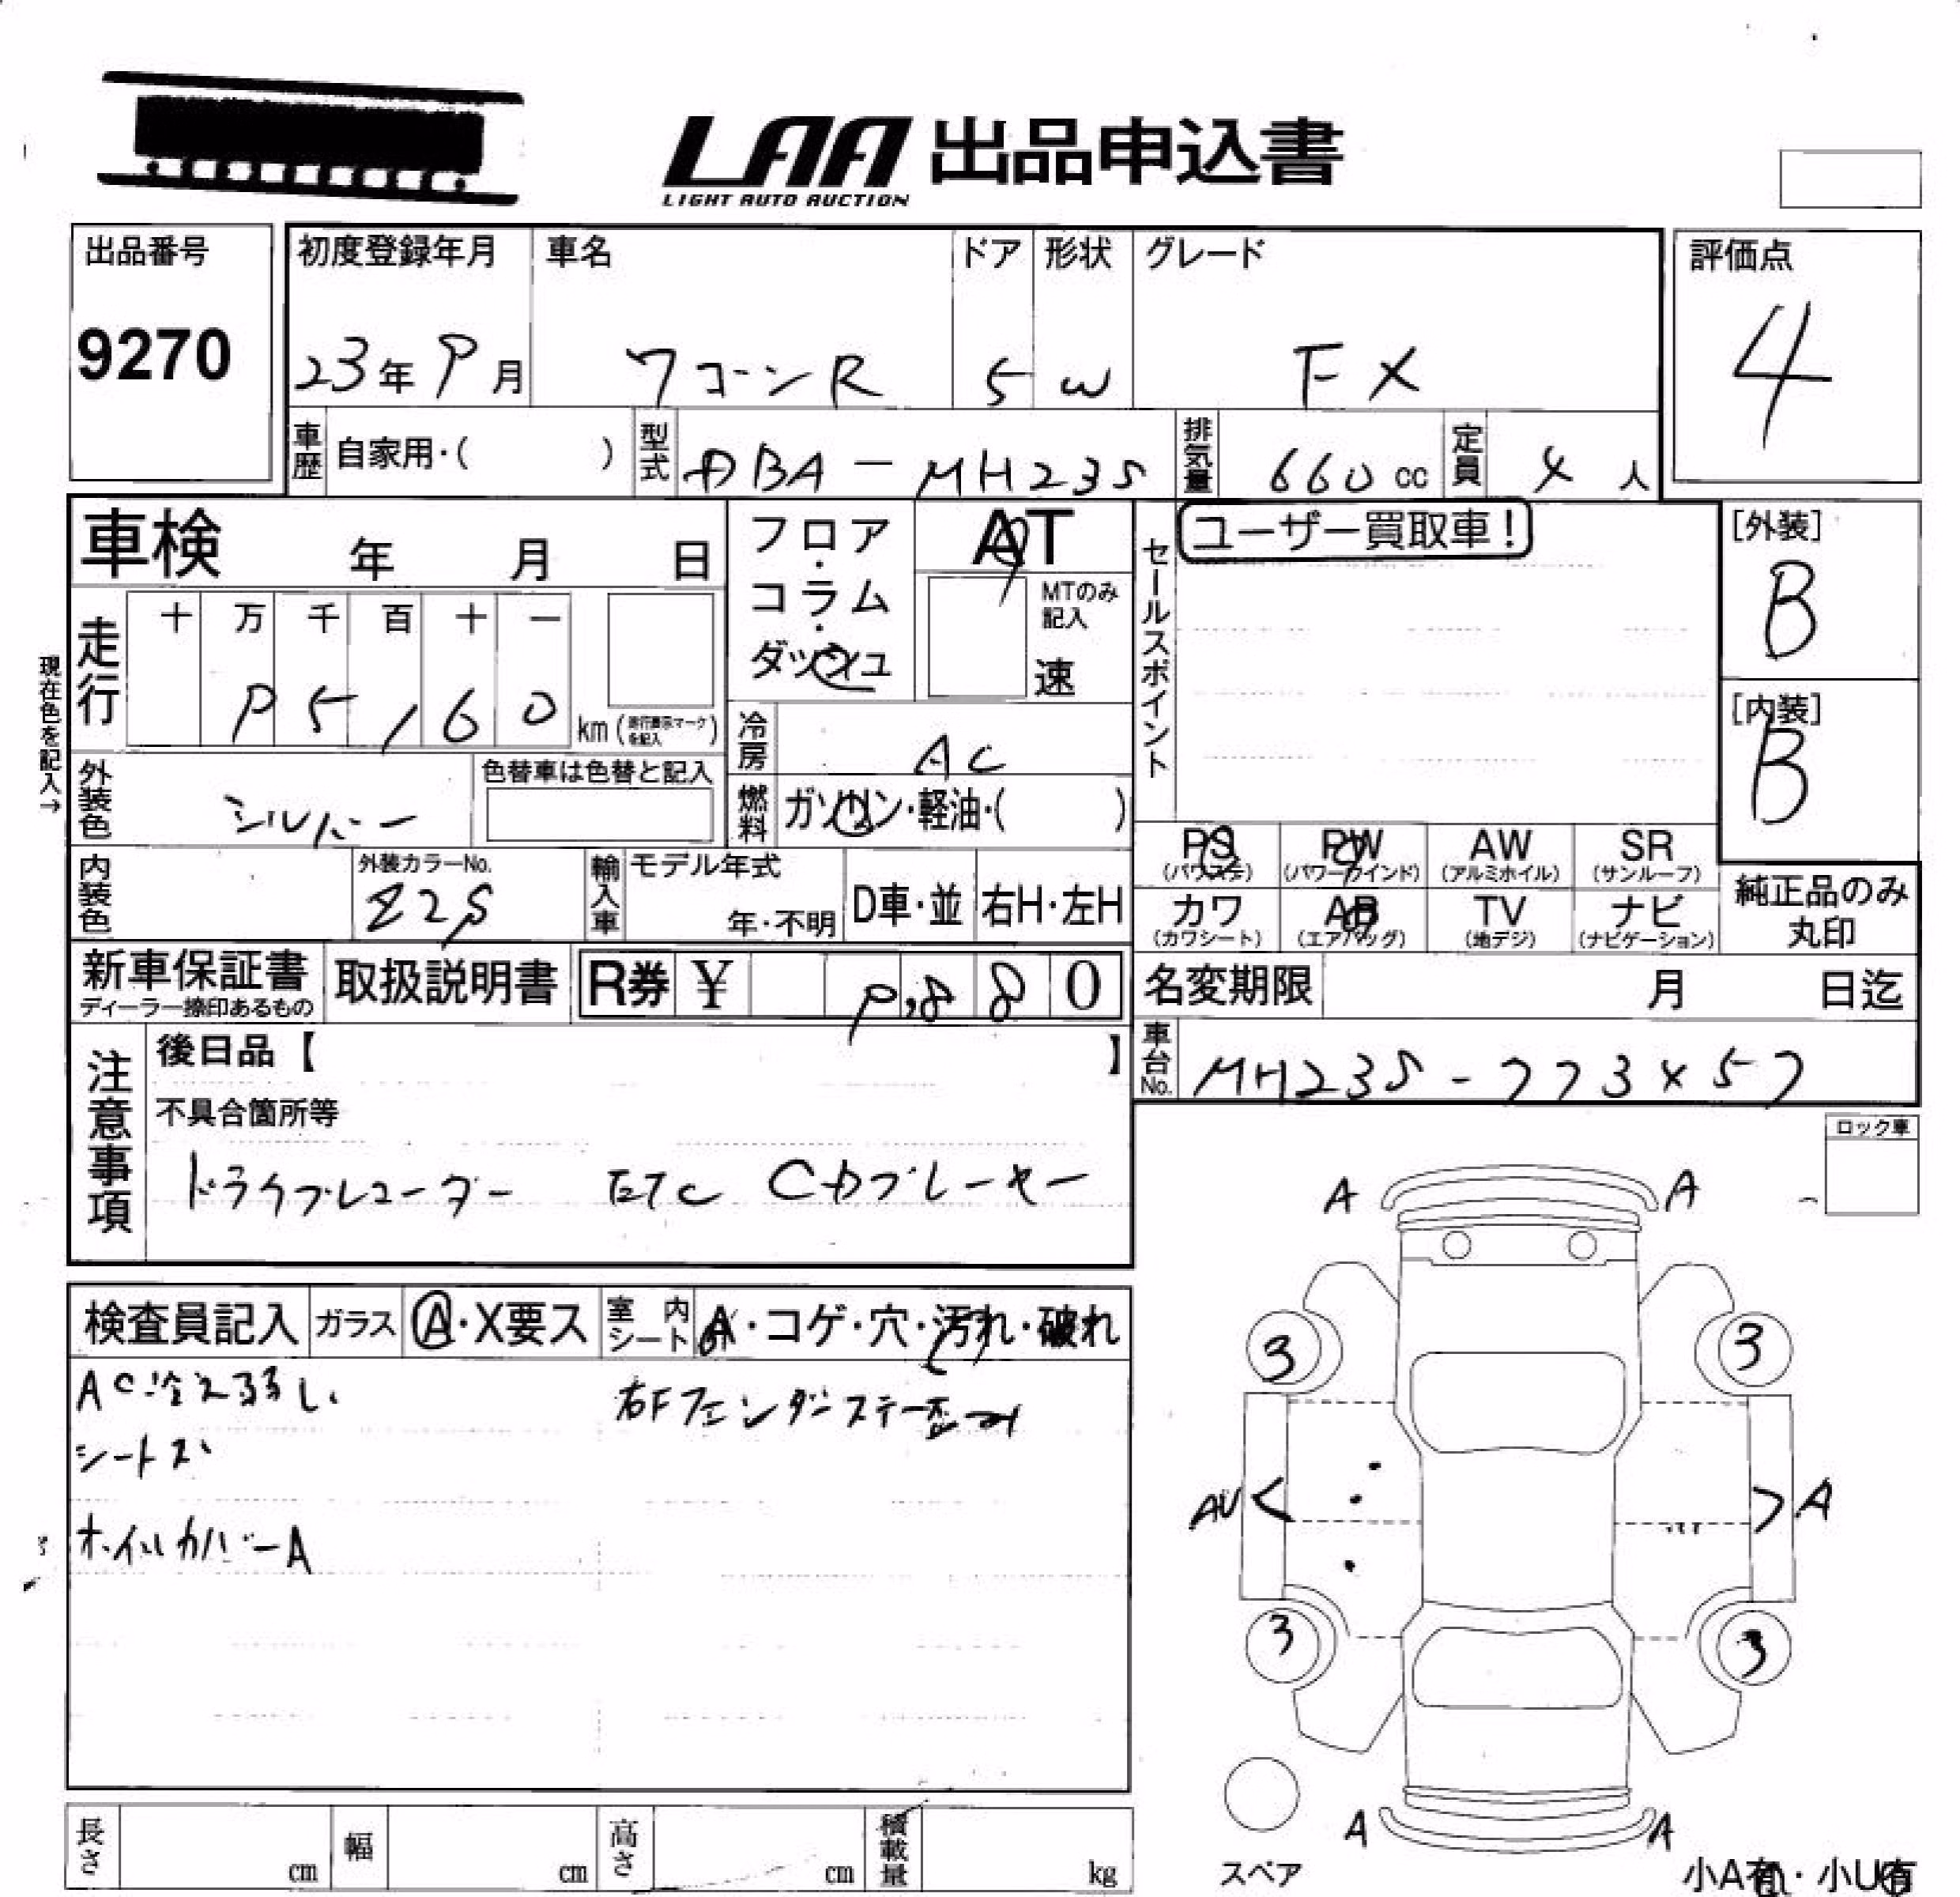 LAA 出品申込書
LIGHT AUTO AUCTION
出品番号
9270
初度登録年月 車名 ドア 形状 グレード
23年9月 ワゴンR 5 W FX
評価点
4
車歴 自家用・( ) 型式 DBA-MH23S 排気量 660cc 定員 4人
車検 年 月 日
フロア・コラム・ダッシュ
AT
MTのみ記入
速
セールスポイント
ユーザー買取車!
[外装]
B
[内装]
B
現在色を記入→
走行 十 万 千 百 十 一
95160 km (走行表示マークを記入)
冷房 AC
外装色 シルバー 色替車は色替と記入
燃料 ガソリン・軽油・( )
内装色 外装カラーNo.
Z2S
輸入車 モデル年式
年・不明 D車・並 右H・左H
PS AW SR
(パワステ) (パワーウインド) (アルミホイル) (サンルーフ)
PW
カワ AB TV ナビ
(カワシート) (エアバッグ) (地デジ) (ナビゲーション)
純正品のみ
丸印
新車保証書
ディーラー捺印あるもの
取扱説明書 R券 ¥ 9,880
名変期限 月 日迄
車台No. MH23S-773457
注意事項
後日品【 】
不具合箇所等
ドライブレコーダー ETC CDプレーヤー
ロック車
検査員記入 ガラス A・X要ス 室内シート A・コゲ・穴・汚れ・破れ
AC冷え弱し
右Fフェンダーステー歪
シートス
ホイルカバーA
A A
3 3
AU A
3 3
A A
スペア
小A有・小U有
長さ cm 幅 cm 高さ cm 積載量 kg